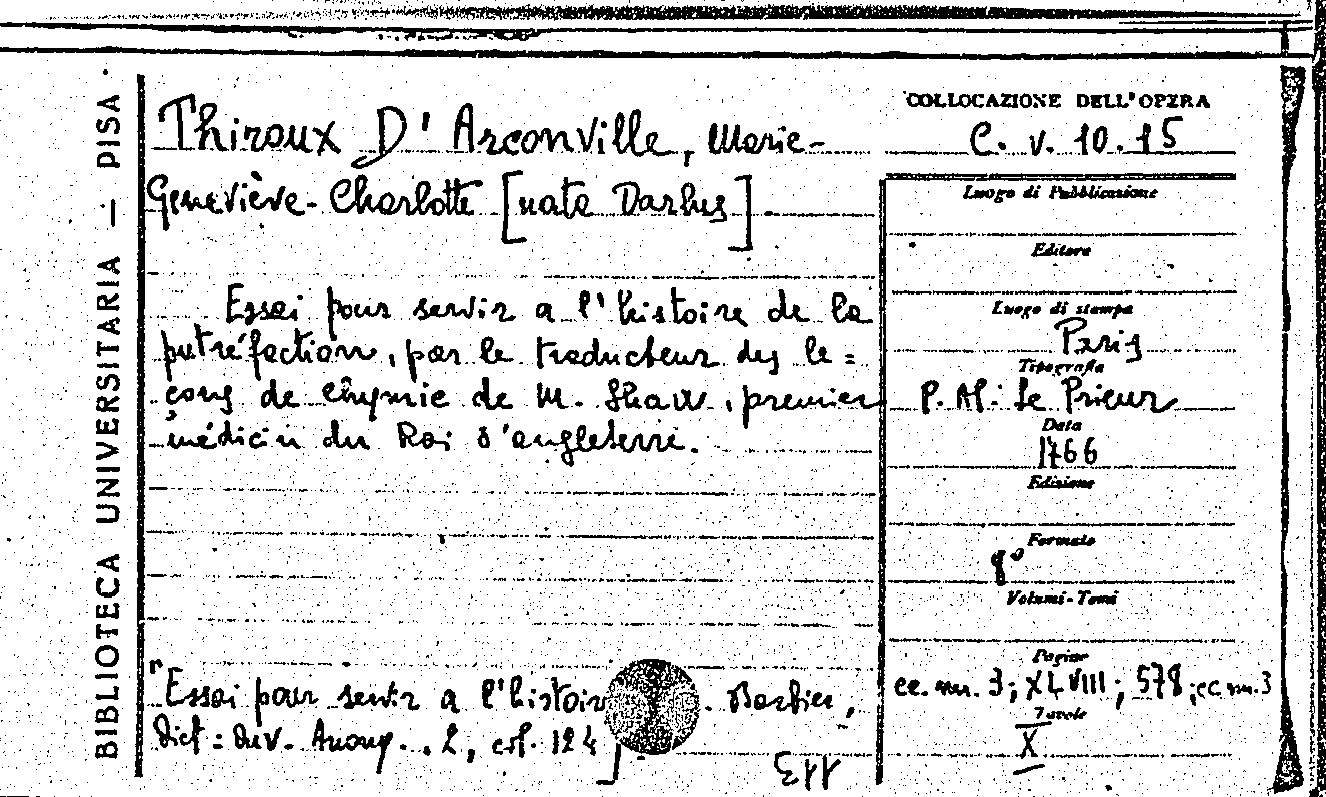 BIBLIOTECA UNIVERSITARIA — PISA
Thiroux D'Arconville, Marie-
Geneviève-Charlotte [nata Darlus].
Essai pour servir a l'histoire de la
putréfaction, par le traducteur des le=
çons de chymie de M. Shaw, premier
médicin du Roi d'angleterre.
[Essai pour servir a l'histoir . Barbier,
Dict: Ouv. Anony. . 2, col. 124]
COLLOCAZIONE DELL'OPERA
C. v. 10. 15
Luogo di Pubblicazione
Editore
Luogo di stampa
Paris
Tipografia
P. Al: Le Prieur
Data
1766
Edizione
Formato
8°
Volumi-Tomi
Pagine
cc. nn. 3; XLVIII; 578; cc. nn. 3
Tavole
X